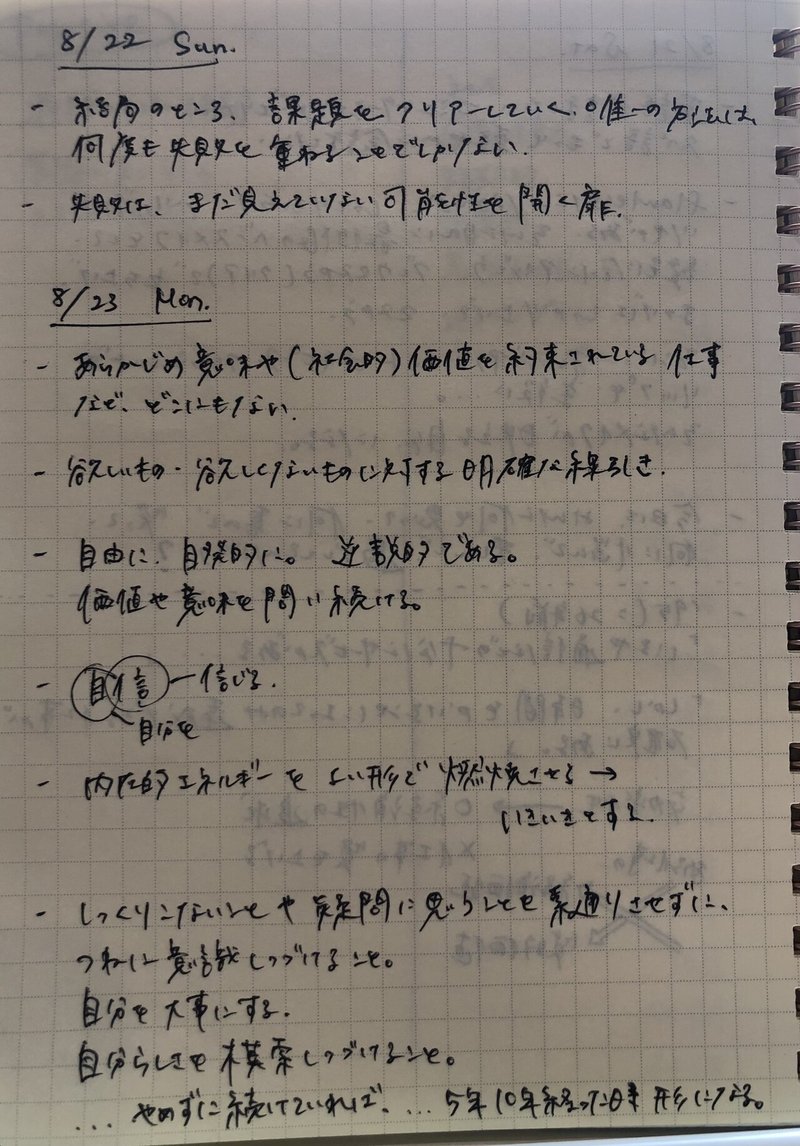 8/22 Sun.
- 結局のところ、課題をクリアーしていく、唯一の方法は、
何度も失敗を重ねることでしかない.
- 失敗は、まだ見えていない可能性を開く扉.
8/23 Mon.
- あらかじめ意味や(社会的)価値を約束されている仕事
など、どこにもない.
- 欲しいもの・欲しくないものに対する明確な線引き.
- 自由に、自発的に。逆説的である。
価値や意味を問い続ける。
- 自信 ー 信じる.
自分を
- 内在的エネルギーをよい形で燃焼させる →
いきいきとする.
- しっくりこないことや疑問に思うことを素通りさせずに、
つねに意識しつづけること。
自分を大事にする.
自分らしさを模索しつづけること。
... やめずに続けていれば、... 5年10年経った時形になる。